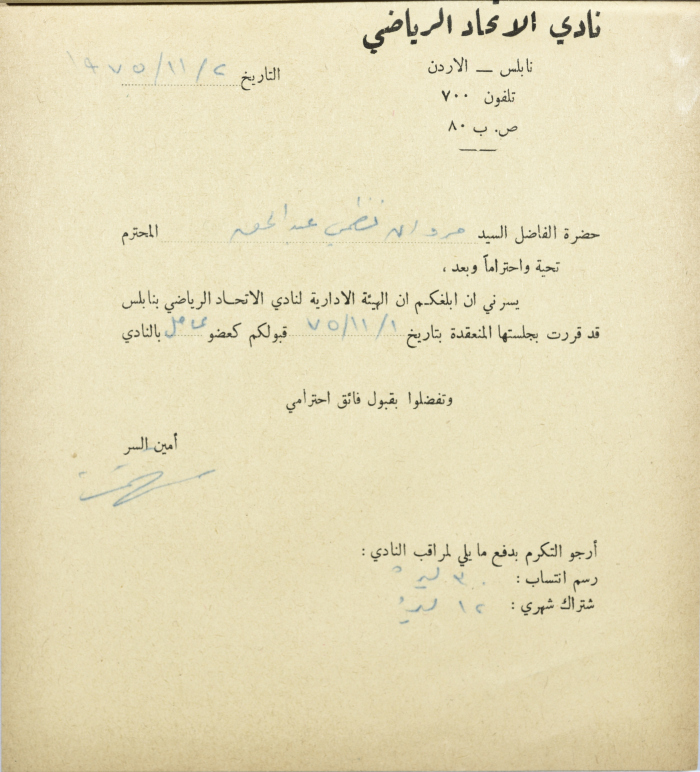 نادي الاتحاد الرياضي
نابلس — الاردن
تلفون ٧٠٠
ص. ب ٨٠
التاريخ ١٩٧٥/١١/٢
حضرة الفاضل السيد مروان نظمي عبد الحق المحترم
تحية واحتراماً وبعد ،
يسرني ان ابلغكم ان الهيئة الادارية لنادي الاتحاد الرياضي بنابلس
قد قررت بجلستها المنعقدة بتاريخ ٧٥/١١/١ قبولكم كعضو عامل بالنادي
وتفضلوا بقبول فائق احترامي
أمين السر
أرجو التكرم بدفع ما يلي لمراقب النادي :
رسم انتساب : ٣٠ ليرة
شتراك شهري : ١٢ ليرة